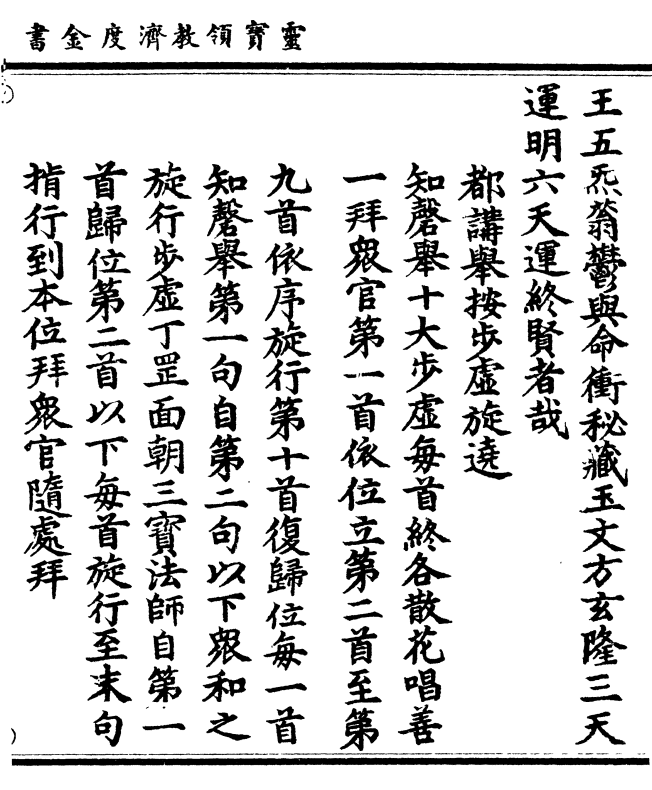 靈寶領教濟度金書
王五炁蓊鬱與命衝秘藏玉文方玄隆三天
運明六天運終賢者哉
都講舉按步虛旋遶
知磬舉十大步虛每首終各散花唱善
一拜衆官第一首依位立第二首至第
九首依序旋行第十首復歸位每一首
知磬舉第一句自第二句以下衆和之
旋行步虛丁罡面朝三寶法師自第一
首歸位第二首以下每首旋行至末句
揹行到本位拜衆官隨處拜